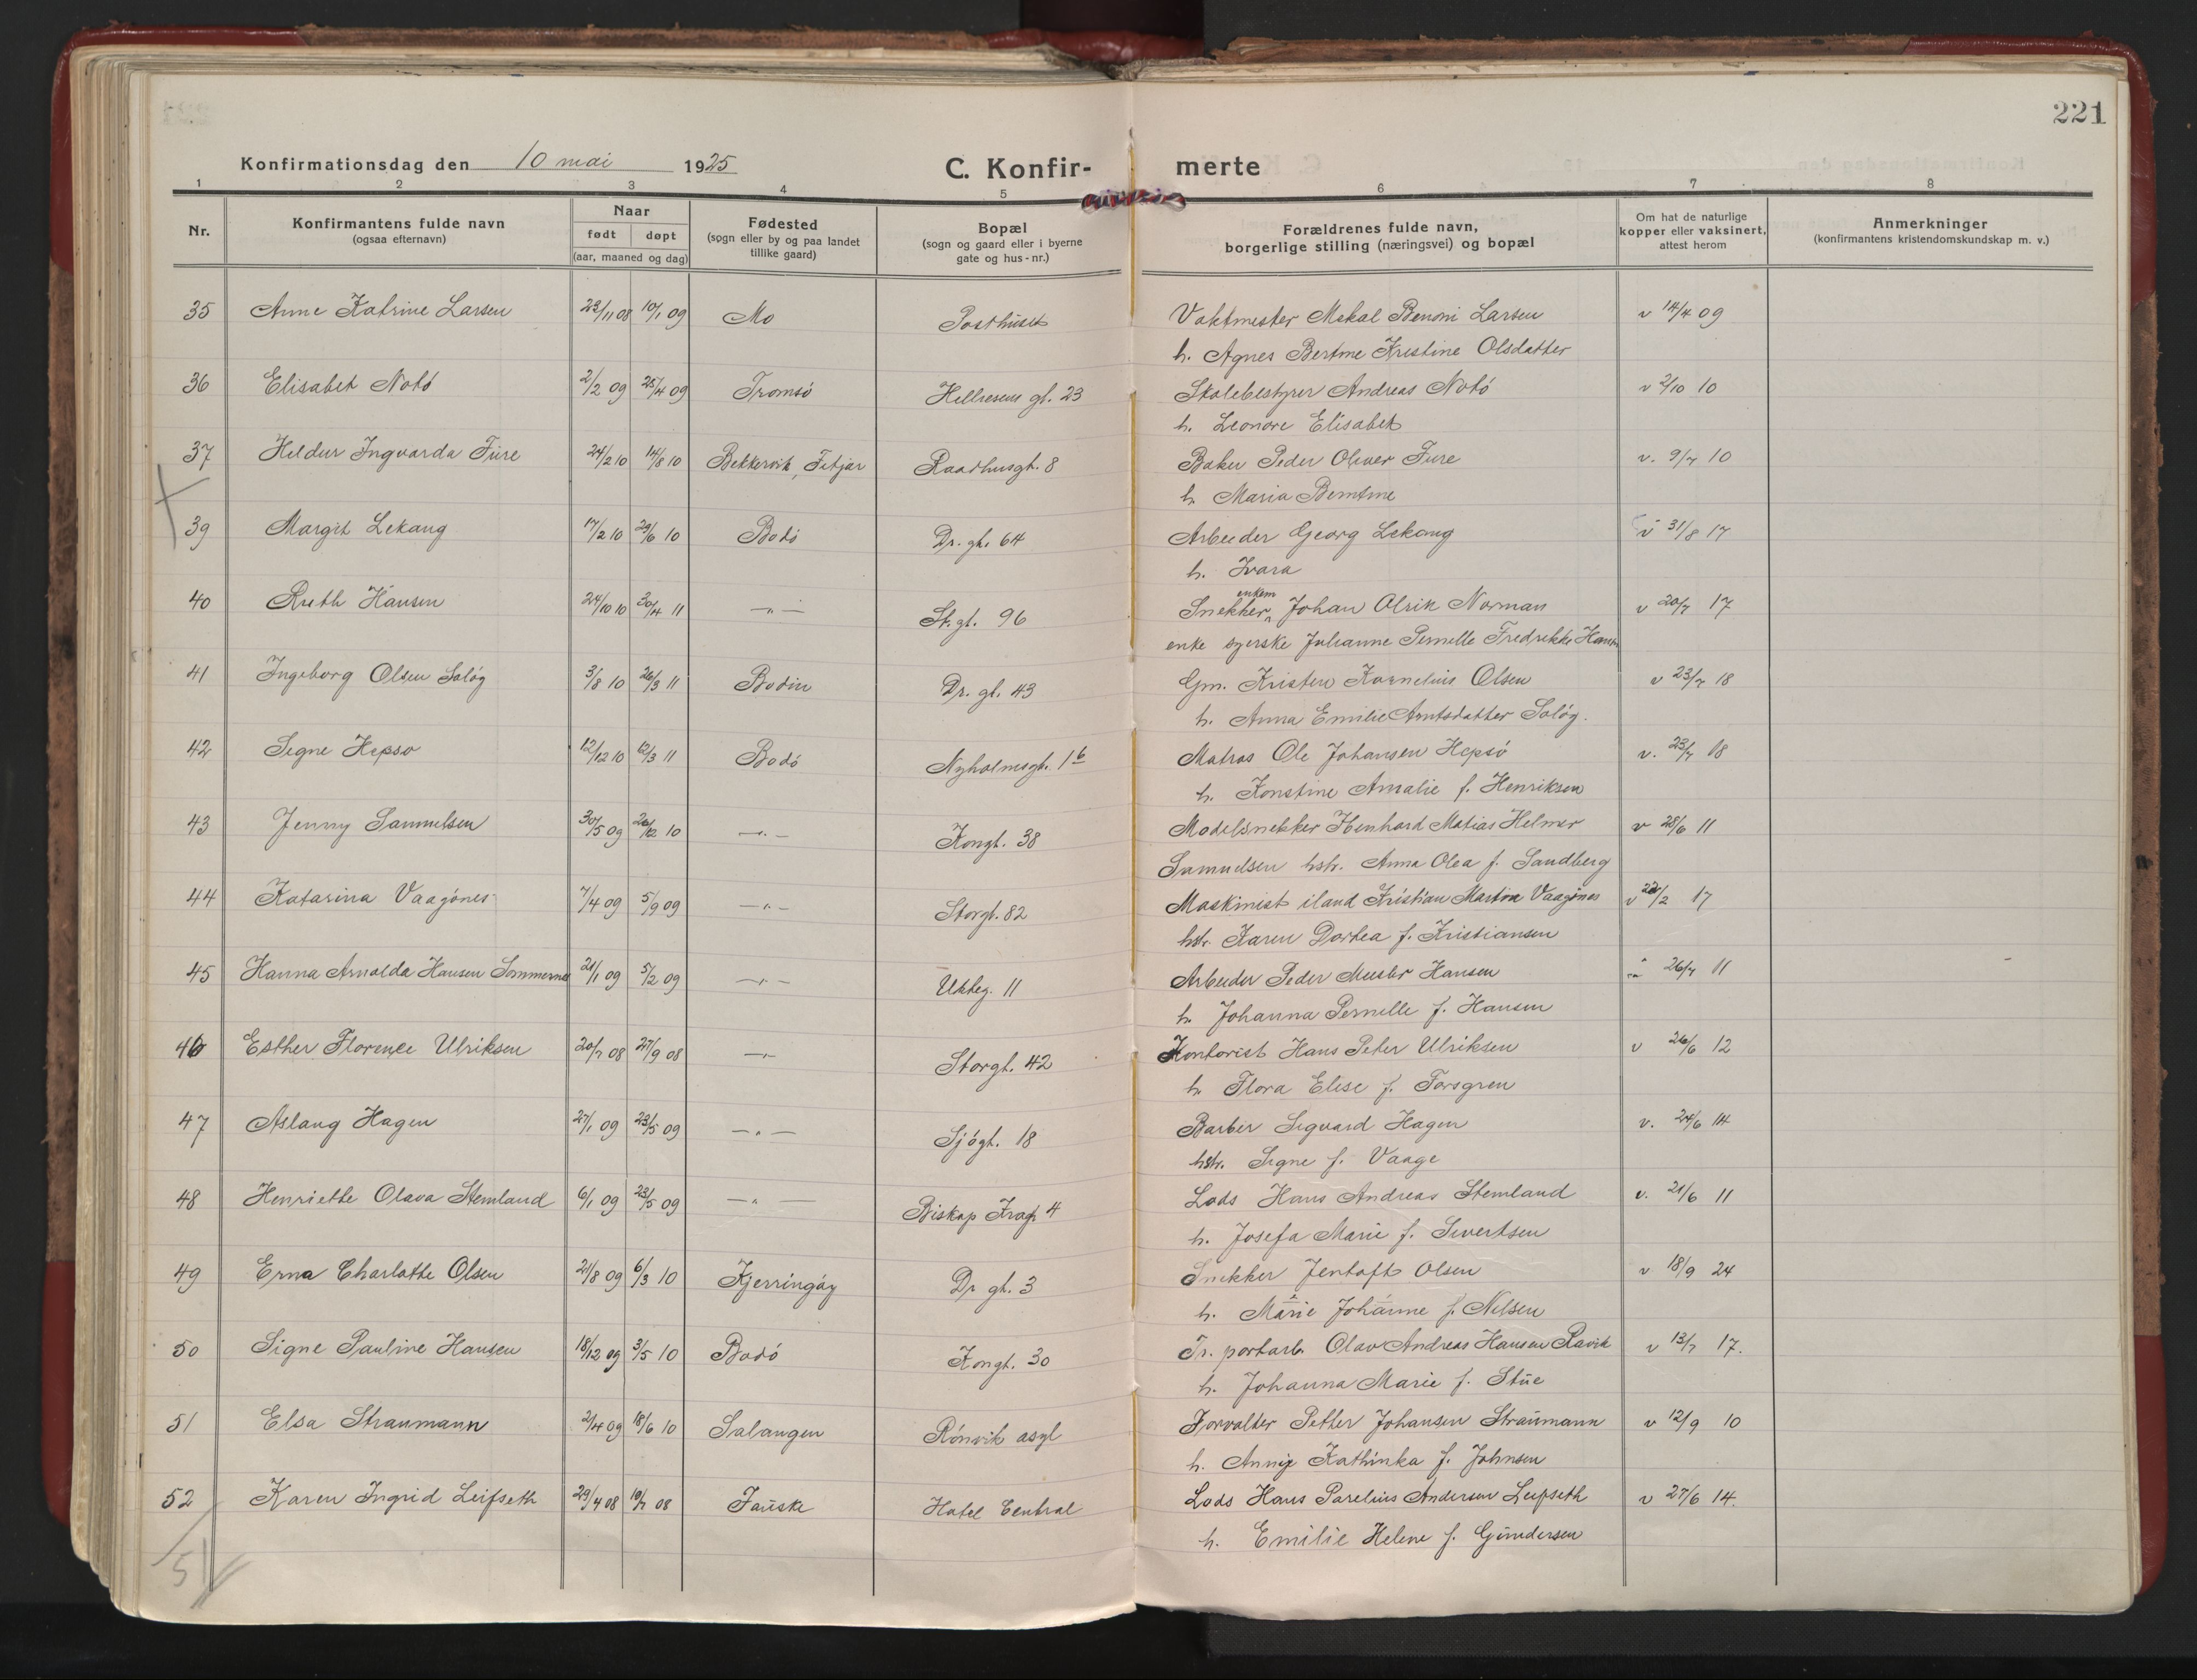 221
Konfirmationsdag den 10 mai 1925 C. Konfir- merte
1 2 3 4 5 6 7 8
Nr. Konfirmantens fulde navn (ogsaa efternavn) Naar født døpt (aar, maaned og dag) Fødested (sogn eller by og paa landet tillike gaard) Bopæl (sogn og gaard eller i byerne gate og hus-nr.) Forældrenes fulde navn, borgerlige stilling (næringsvei) og bopæl Om hat de naturlige kopper eller vaksinert, attest herom Anmerkninger (konfirmantens kristendomskundskap m. v.)
35 Anne Katrine Larsen 23/11 08 10/1 09 Mo Posthuset Vaktmester Mekal Benoni Larsen v 14/4 09
h. Agnes Bertine Kristine Olsdatter
36 Elisabet Notó 2/2 09 25/4 09 Tromsó Hellresens gt. 23 Skolebestyrer Andreas Notó v 2/10 10
h. Leonore Elisabet
37 Heldur Ingvarda Fure 24/2 10 14/8 10 Bekkervik, Fitjar Raadhusgt. 8 Baker Peder Oliver Fure v. 9/7 10
h. Maria Berntine
39 Margit Lekang 17/2 10 29/6 10 Bodó Dr. gt. 64 Arbeider Georg Lekang v 31/8 17
h. Ivara
40 Ruth Hansen 24/10 10 30/4 11 —„— St. gt. 96 Snekker, enkem Johan Olrik Norman v 20/7 17
enke syerske Julianne Pernille Fredrikke Hansen
41 Ingeborg Olsen Sológ 3/8 10 26/3 11 Bodin Dr. gt. 43 Gm. Kristen Kornelius Olsen v 23/7 18
h. Anna Emilie Arntsdatter Sológ.
42 Signe Hepso 12/12 10 12/3 11 Bodó Nyholmsgt. 1b Matros Ole Johansen Hepsó v. 23/7 18
h. Konstine Amalie f. Henriksen
43 Jenny Samuelsen 30/5 09 26/12 10 —„— Kongt. 38 Modelsnekker Ebenhard Matias Helmer v 28/6 11
Samuelsen hstr. Anna Olea f. Sandberg
44 Katarina Vaagónes 7/4 09 5/9 09 —„— Storgt. 82 Maskinist iland Kristian Martin Vaagónes v 22/2 17
hstr. Karen Dortea f. Kristiansen
45 Hanna Arnolda Hansen Sommernes 21/1 09 5/2 09 —„— Ukteg. 11 Arbeider Peder Meesler Hansen 26/7 11
h. Johanna Pernelle f. Hansen
46 Esther Florence Ulriksen 20/7 08 27/9 08 —„— Storgt. 42 Kontorist Hans Peter Ulriksen v 26/6 12
h. Flora Elise f. Forsgren
47 Aslaug Hagen 27/1 09 23/5 09 —„— Sjógt. 18 Barber Sigvard Hagen v. 24/6 14
hstr. Signe f. Vaage
48 Henriette Olava Stemland 6/1 09 23/5 09 —„— Biskop Krogs 4 Lods Hans Andreas Stemland v. 21/6 11
h. Josefa Marie f. Sivertsen
49 Erna Charlotte Olsen 21/8 09 6/3 10 Kjerringóy Dr gt. 3 Snekker Jentoft Olsen v 18/9 24
h. Marie Johanne f. Nilsen
50 Signe Pauline Hansen 18/12 09 3/5 10 Bodó Kongt. 30 Tr. portarb. Olav Andreas Hansen Ravik v 13/7 17.
h. Johanna Marie f. Stue
51 Elsa Straumann 2/4 09 18/6 10 Salangen Rónvik asyl Forvalter Petter Johansen Straumann v 12/9 10
h. Annie Kathinka f. Johnsen
52 Karen Ingrid Leifseth 29/4 08 19/7 08 Fauske Hotel Central Lods Hans Parelius Andersen Leifseth v 27/6 14.
h. Emilie Helene f. Gundersen
51